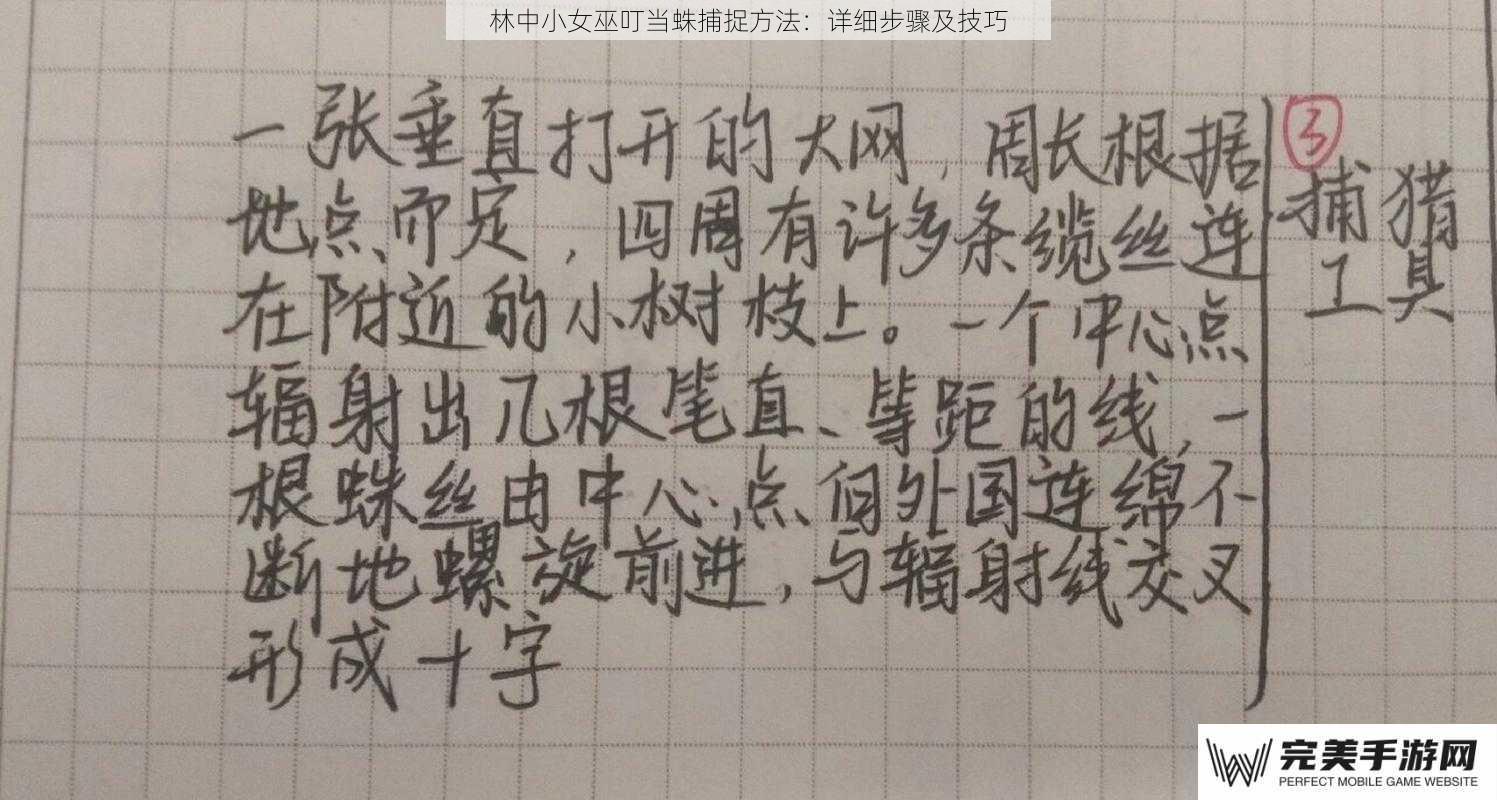 林中小女巫叮当蛛捕捉方法：详细步骤及技巧
一张垂直打开的大网，周长根据
地点而定，四周有许多条缆丝连
在附近的小树枝上。一个中心点
辐射出几根笔直、等距的线，一
根蛛丝由中心点向外围连绵不
断地螺旋前进，与辐射线交叉
形成十字
③
捕猎
工具
完美手游网
PERFECT MOBILE GAME WEBSITE